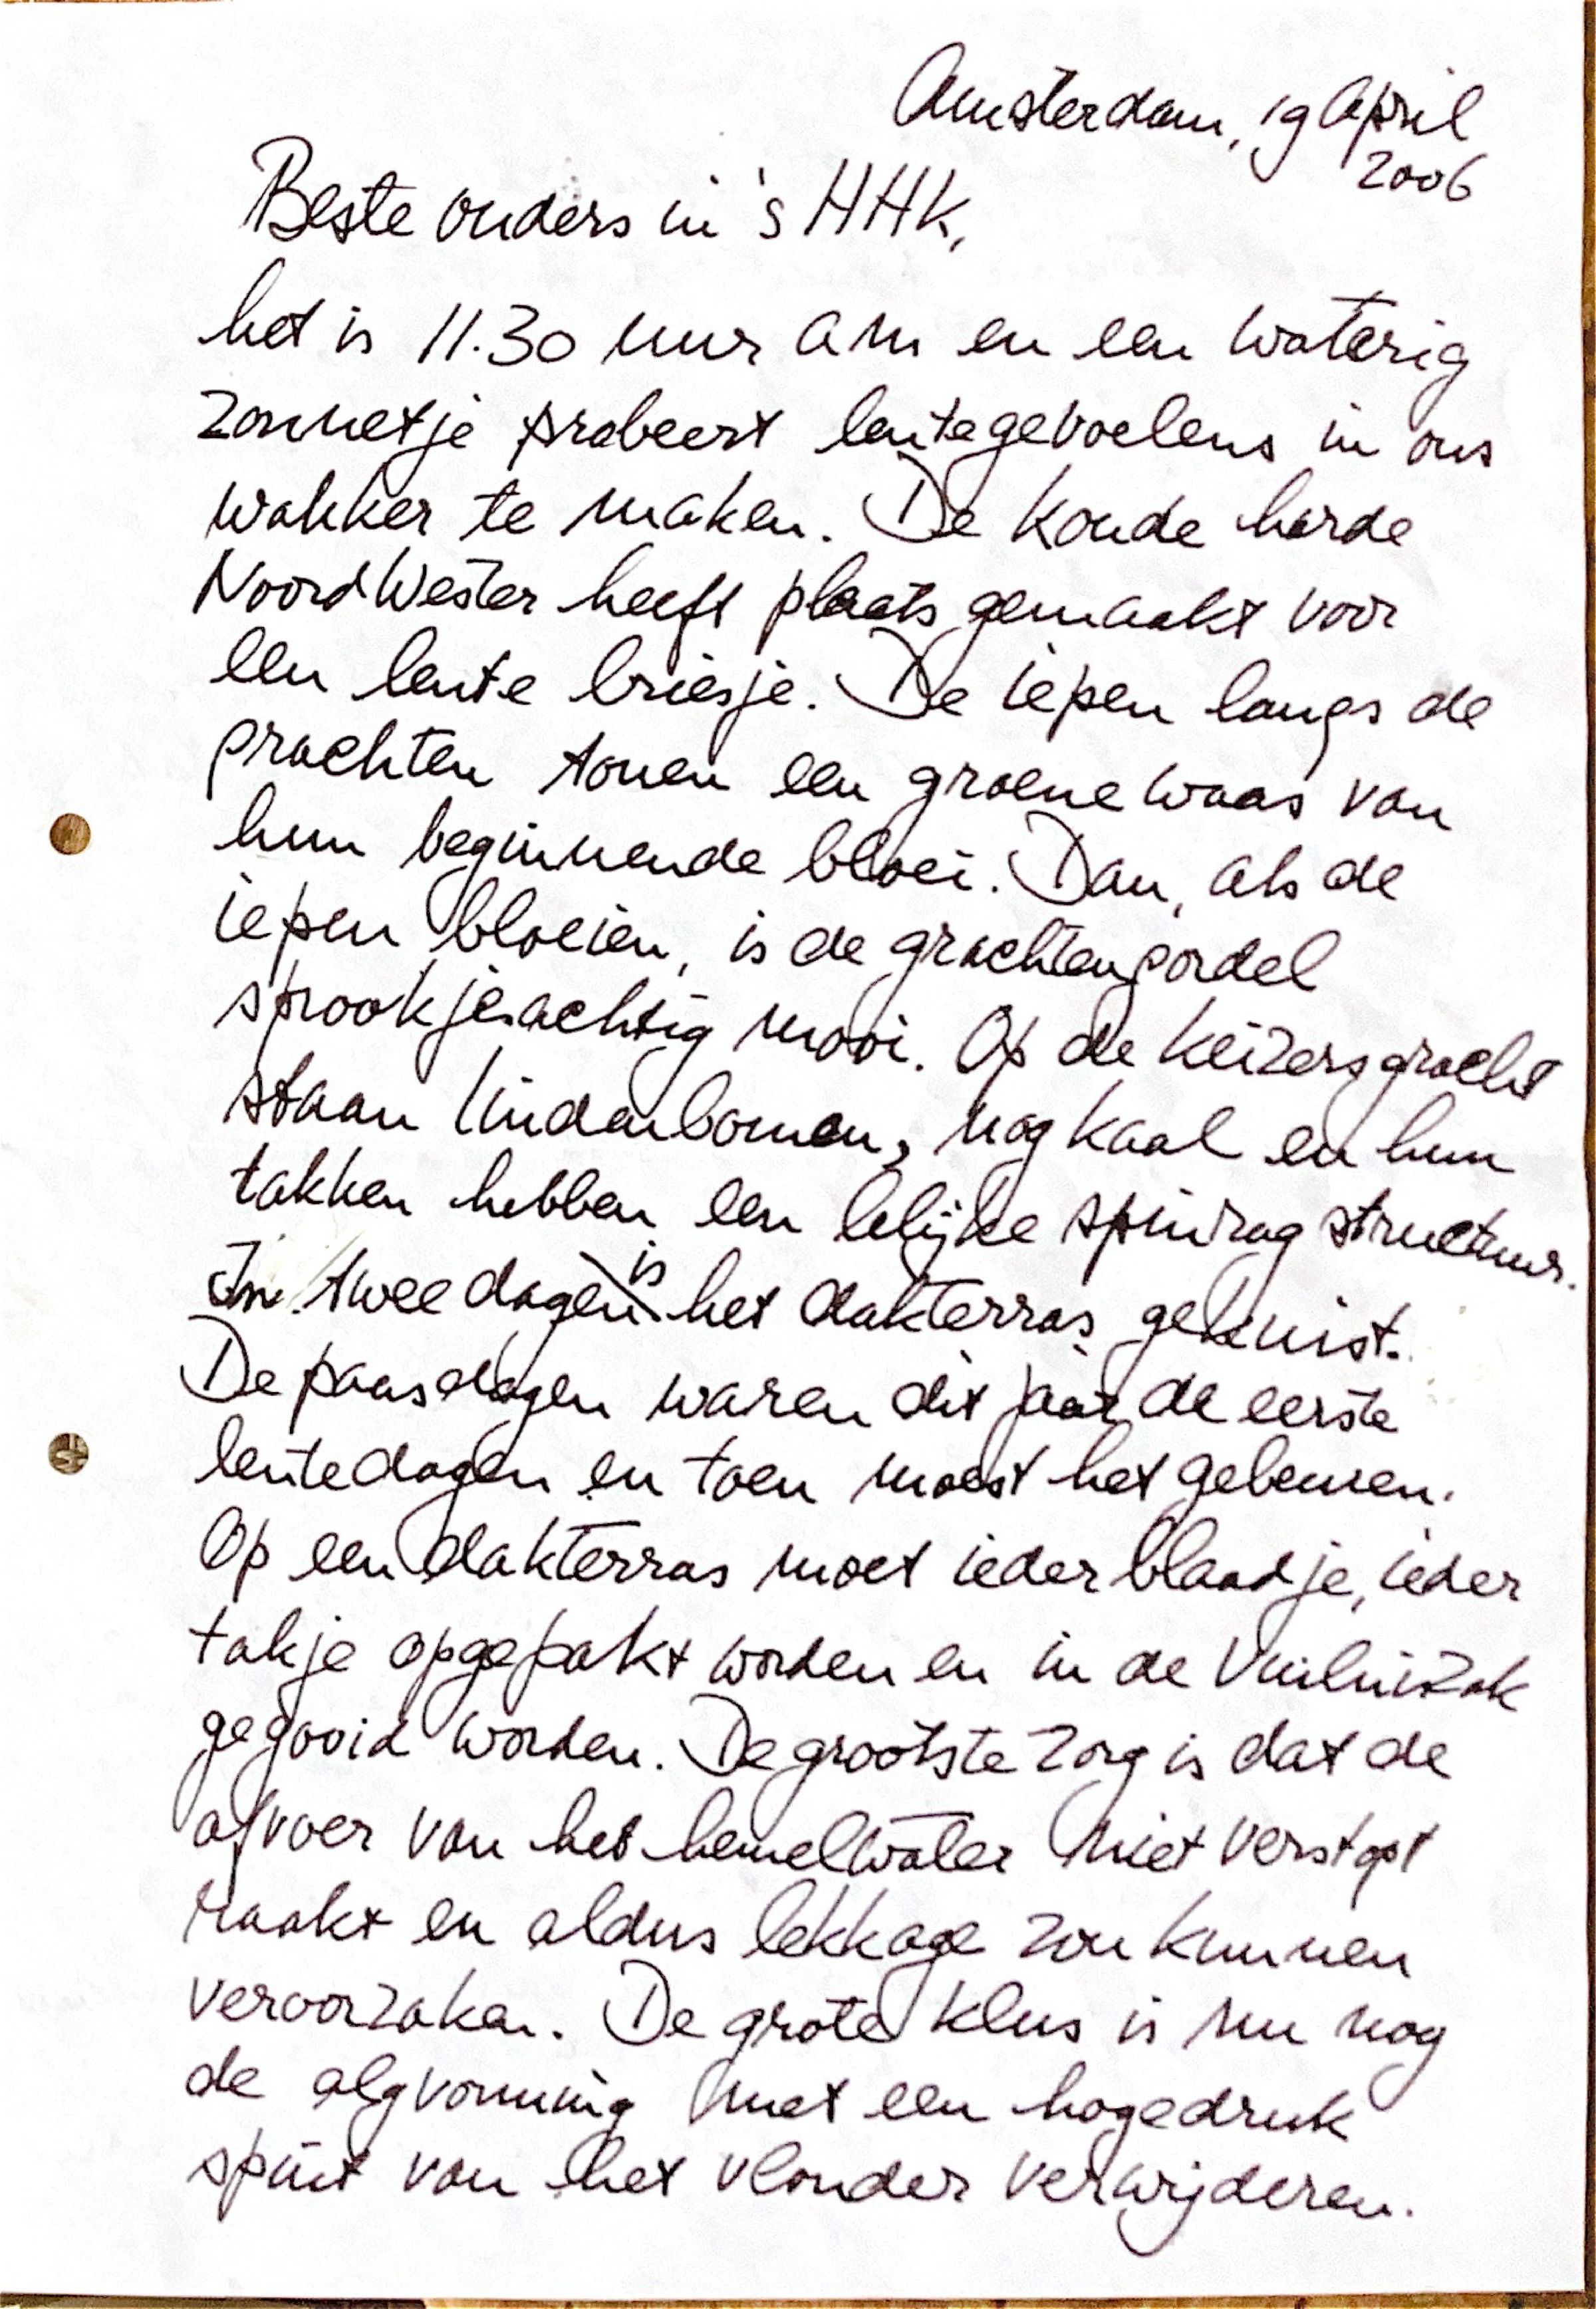 Amsterdam, 19 April
2006
Beste ouders in 's HHK,
het is 11.30 uur am en een waterig
zonnetje probeert lentegevoelens in ons
wakker te maken. De koude harde
NoordWester heeft plaats gemaakt voor
een lente briesje. De iepen langs de
grachten tonen een groene waas van
hun beginnende bloei. Dan, als de
iepen bloeien, is de grachtengordel
sprookjesachtig mooi. Op de Keizersgracht
staan lindenbomen, nog kaal en hun
takken hebben een lelijke spinrag structuur.
In twee dagen is het dakterras gekuist.
De paasdagen waren dit jaar de eerste
lentedagen en toen moest het gebeuren.
Op een dakterras moet ieder blaadje, ieder
takje opgepakt worden en in de vuilniszak
gegooid worden. De grootste zorg is dat de
afvoer van het hemelwater niet verstopt
raakt en aldus lekkage zou kunnen
veroorzaken. De grote klus is nu nog
de algvorming met een hogedruk
spuit van het vlonder verwijderen.